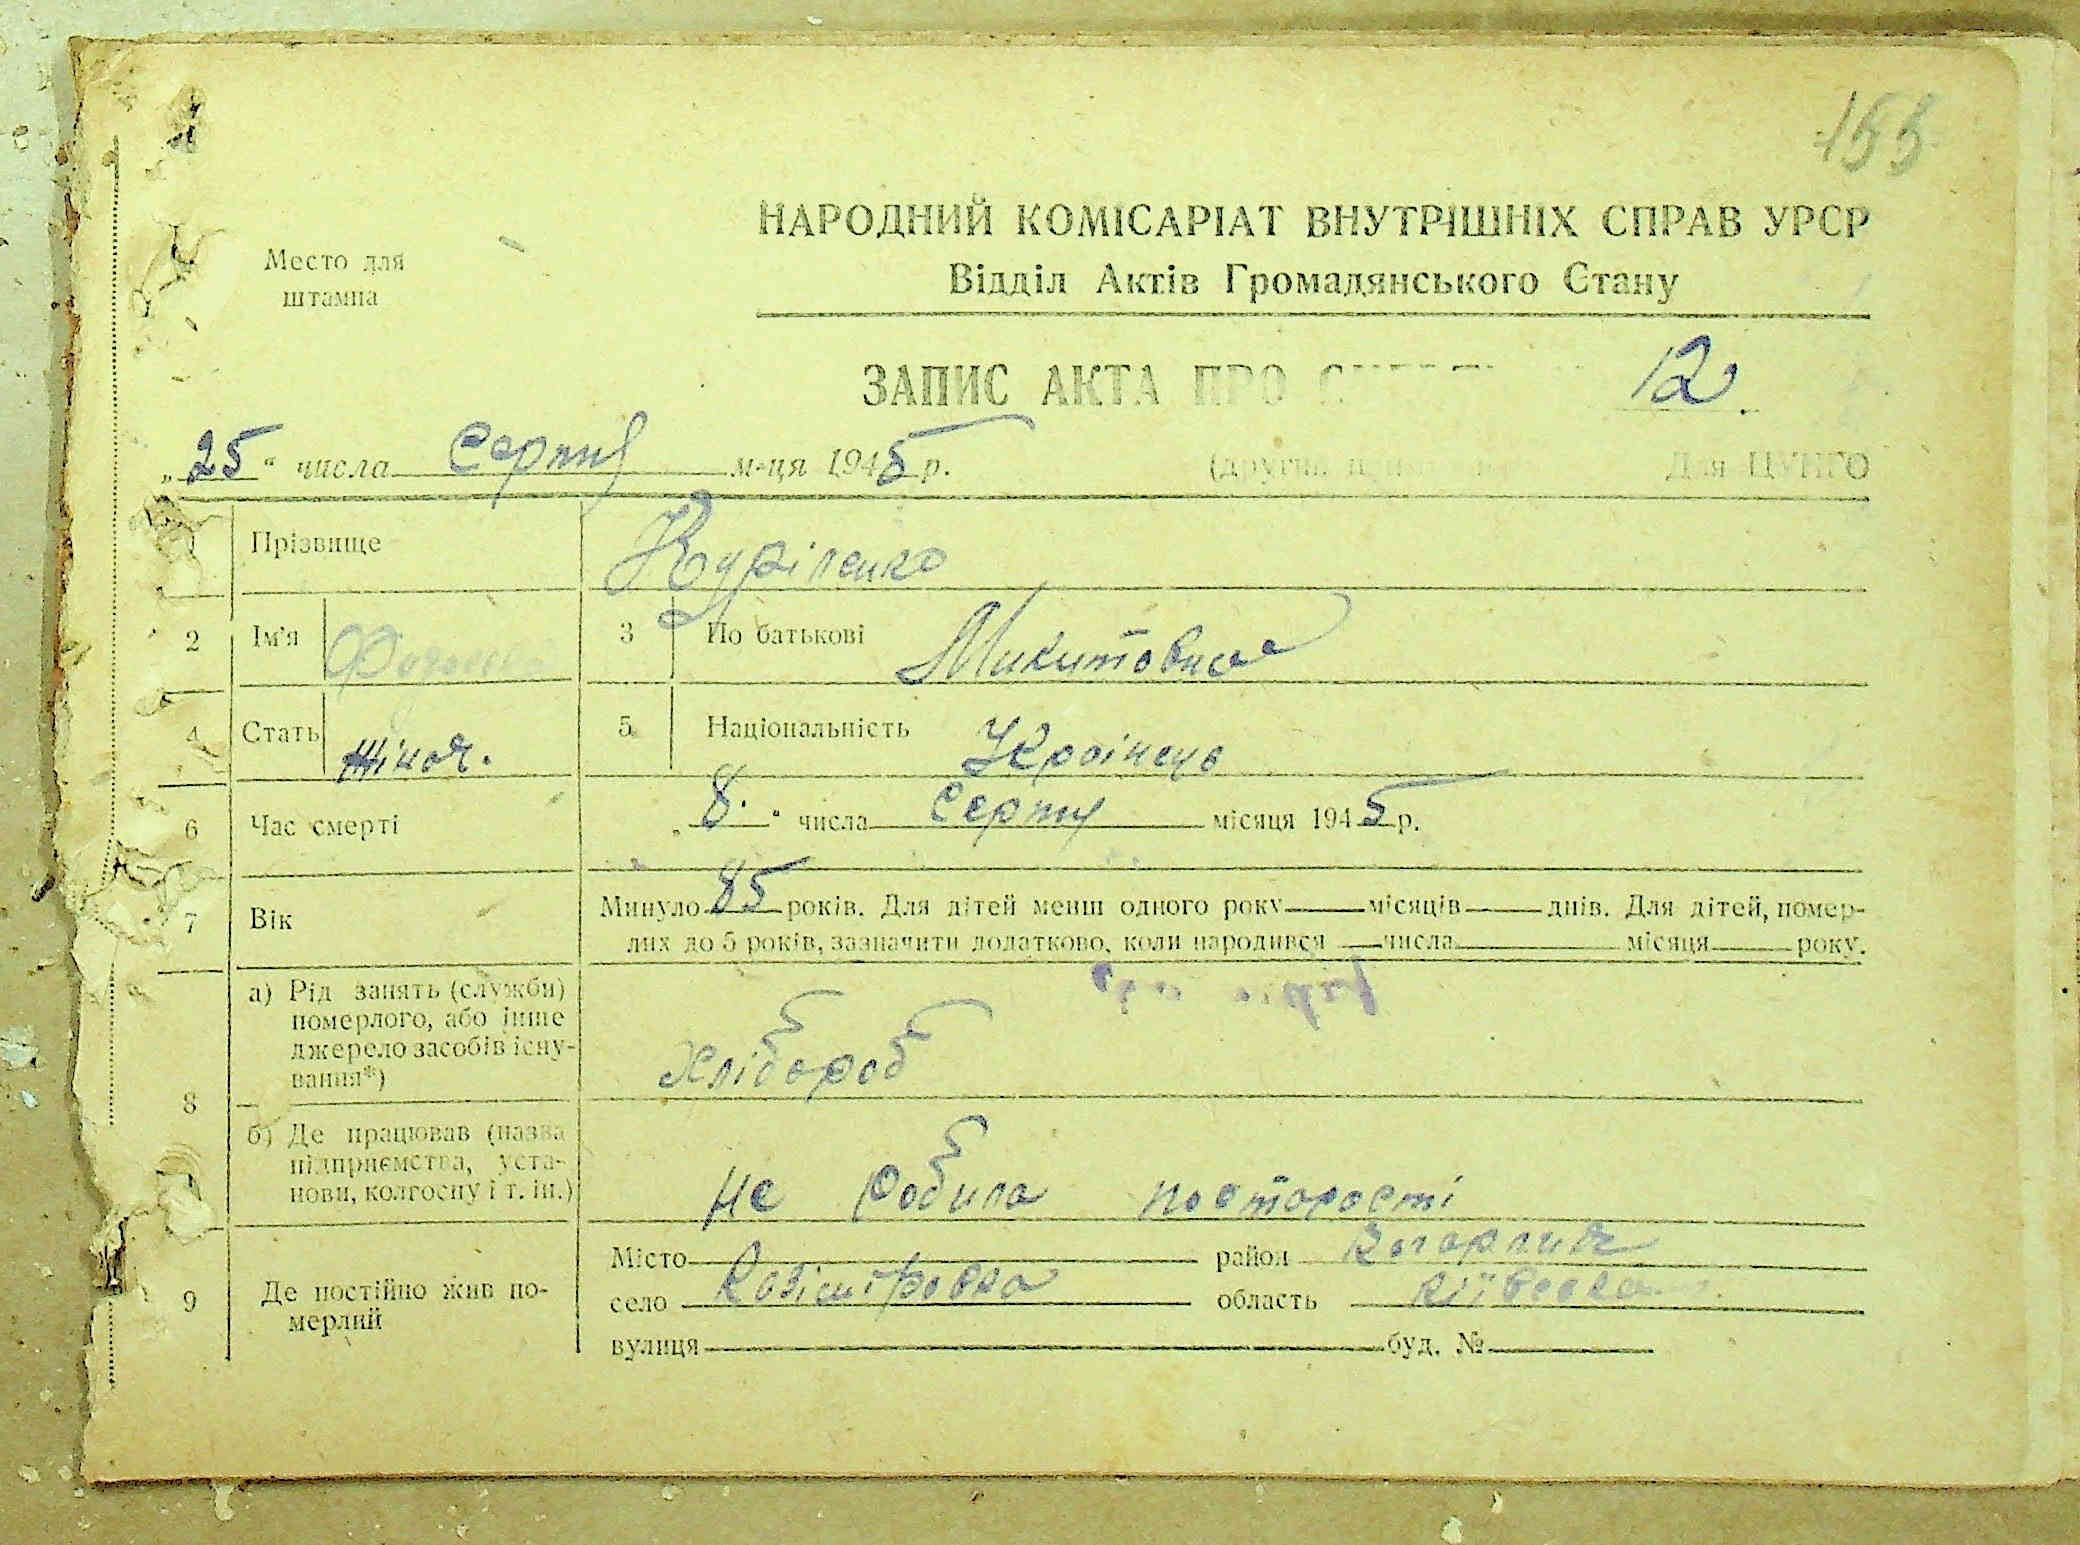 155
НАРОДНИЙ КОМІСАРІАТ ВНУТРІШНІХ СПРАВ УРСР
Место для
штампа
Відділ Актів Громадянського Стану
ЗАПИС АКТА ПРО 12
„25“ числа Серпня м-ця 1945 р. (другий Для ЦУНГО
1 Прізвище Куріленко
2 Ім'я 3 По батькові Микитовна
4 Стать жіноч. 5 Національність Країнець
6 Час смерті „8“ числа Серпня місяця 1945 р.
7 Вік Минуло 85 років. Для дітей менш одного року місяців днів. Для дітей, помер-
лих до 5 років, зазначити додатково, коли народився числа місяця року.
8 а) Рід занять (служби)
померлого, або інше
джерело засобів існу-
вання*) Хлібороб
б) Де працював (назва
підприємства, уста-
нови, колгоспу і т. ін.) не робила постарості
9 Де постійно жив по-
мерлий
Місто район Кагарлик
село область Київська
вулиця буд. №